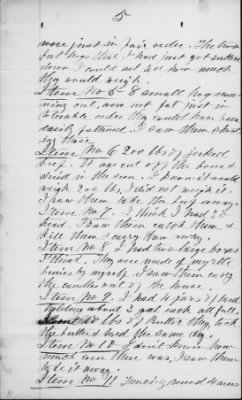 5
were just in fair order. The two
fat hogs that I had just got
down I could not tell how much
they would weigh.
Item No 5- 8 small hogs run-
ning out, were not fat just in
tolerable order they could have been
easily fattened. I saw them
these
Item No 6 200 lbs of jerked
beef. It was cut off the bones &
dried in the sun. I know it would
weigh 200 lbs, I did not weigh it.
I saw them take the beef away.
Item No 7. I think I had 30
head. I saw them catch them &
kill them & carry them away.
Item No 8. I had two large boxes
I think. They were made of myrtle
berries by myself. I saw them carry
the candles out of the house.
Item No 9. I had 4 jars of lard
holding about 2 gal each all full.
lbs of Butter they took
the butter & lard the same day.
Item No 10 I don't know how
much corn there was, I saw them
it away.
Item No 11 Fencing around 4 acres